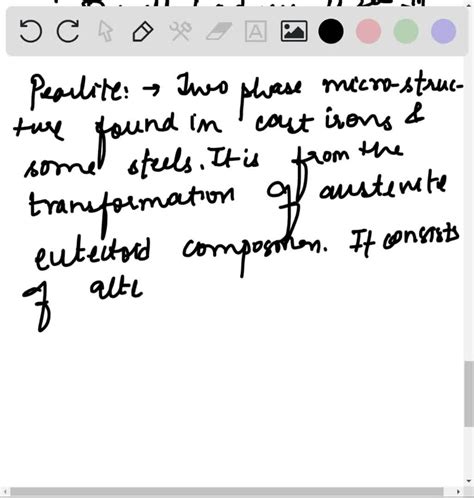 Pearlite: → Two phase micro-struc-
ture found in cast irons &
some steels. It is from the
transformation of austenite
eutectoid composition. It consists
of alte